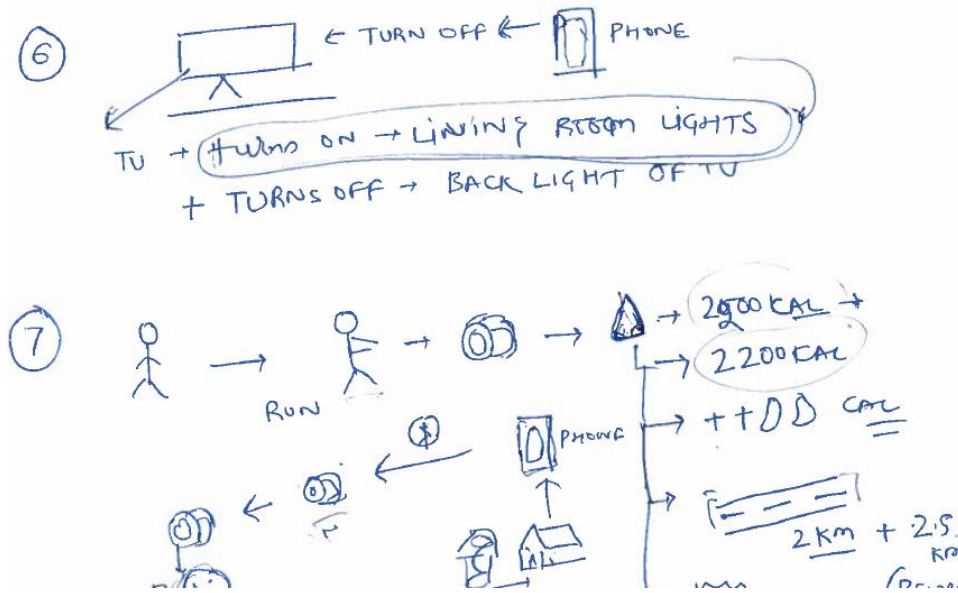 6
← TURN OFF ← PHONE
TV → turns ON → LIVING ROOM LIGHTS
+ TURNS OFF → BACK LIGHT OF TV
7
→ → → → 2900 CAL →
→ 2200 KAL
RUN
→ ++DD CAL
$ PHONE
2 KM + 2.5
KM